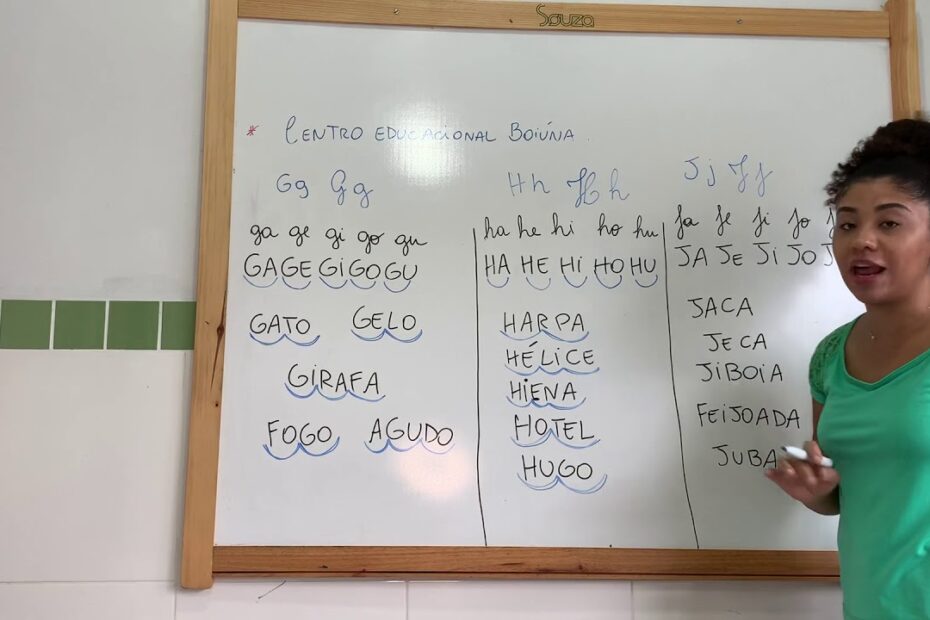 Souza
* CENTRO EDUCACIONAL BOIÚNA.
Gg Gg
ga ge gi go gu
GA GE GI GO GU
GATO GELO
GIRAFA
FOGO AGUDO
Hh Hh
ha he hi ho hu
HA HE HI HO HU
HARPA
HÉLICE
HIENA
HOTEL
HUGO
Jj Jj
ja je ji jo j
JA JE JI JO J
JACA
JECA
JIBOIA
FEIJOADA
JUBA